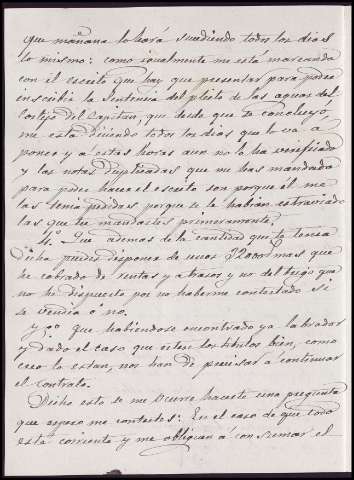 que mañana lo hará sucediendo todos los dias
lo mismo: como igualmente me está mareando
con el escrito que hay que presentar para poder
inscribir la sentencia del pleito de las aguas del
Cortijo del Capitan, que desde que te concluyó
me está diciendo todos los dias que lo vá á
poner y á estas horas aun no lo ha verificado
y las notas duplicadas que me has mandado
para poder hacer el escrito son porque él me
las tenia pedidas porque se le habian extraviado
las que tu mandastes primeramente.
4.º Que ademas de la cantidad que te tenia
dicha puedes disponer de unos mas que
he cobrado de rentas y atrasos y no del trigo que
no he dispuesto por no haberme contestado si
se vendia ó no.
y que habiendose encontrado ya labrador
y dado el caso que esten los titulos bien, como
creo lo estan, nos han de precisar á continuar
el contrato.
Dicho esto se me ocurre hacerte una pregunta
que espero me contestes: En el caso de que todo
esté corriente y me obliguen á consumar el